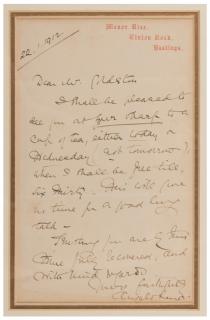 Manor Rise,
Linton Road,
Hastings.
22.1.1912
Dear Mr.
I shall be pleased to
see you at four sharp to a
cup of tea, either today or
Wednesday (not tomorrow)
when I shall be free till
six thirty. This will give
us time for a good long
talk —
Trusting you are by this
time fully recovered, and
with kind regards
Yours faithfully